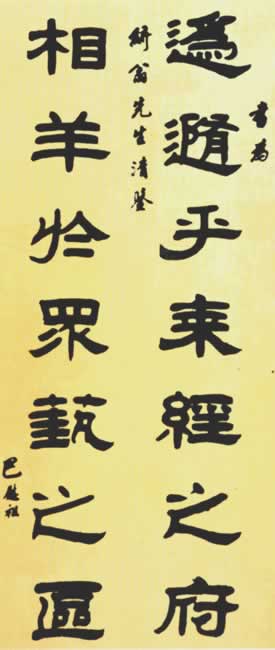 乎
經之府
書為
研翁先生清鑒
相羊於眾藝之區
巴慰祖